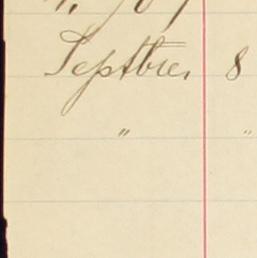 Septbr. 8
" "